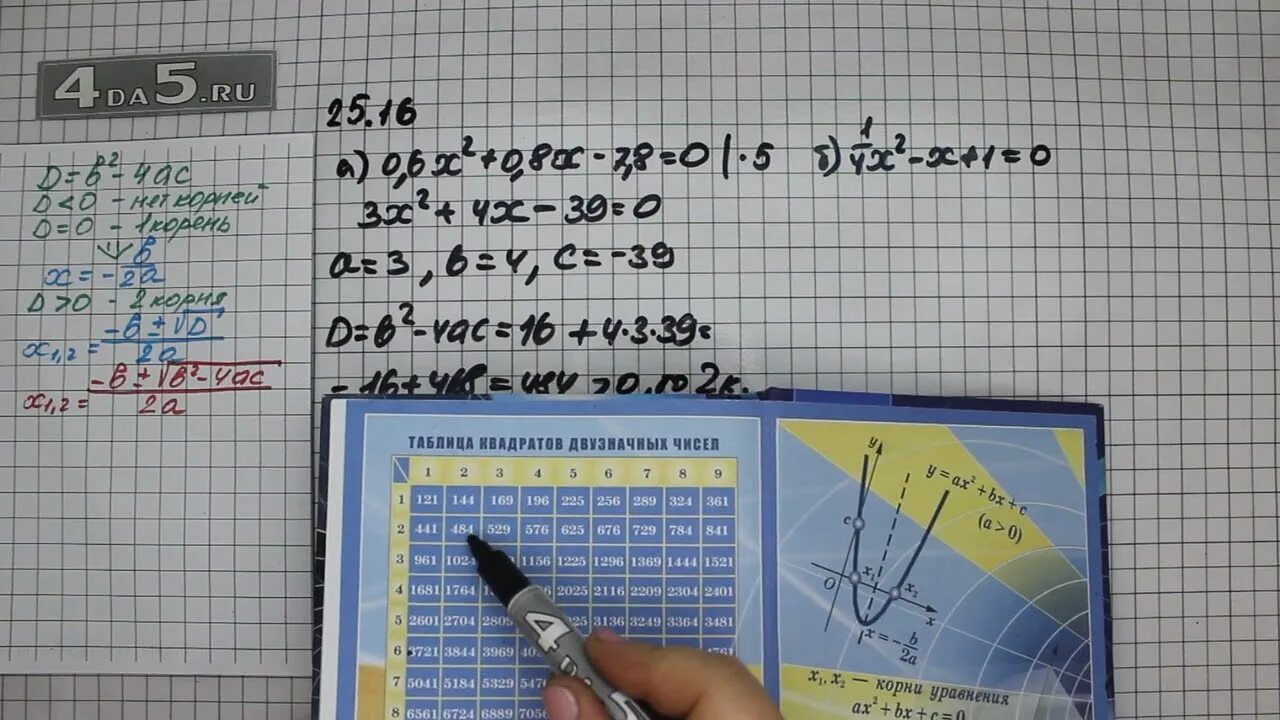 4DA5.RU
D=в²-4ac
D<0 - нет корней
D=0 - 1 корень
x=-в/2a
D>0 - 2 корня
x1,2=(-в±√D)/2a
x1,2=(-в±√(в²-4ac))/2a
25.16
а) 0,6x²+0,8x-7,8=0 |·5 б) 1/4x²-x+1=0
3x²+4x-39=0
a=3, в=4, c=-39
D=в²-4ac=16+4·3·39=
=16+468=484>0, то 2к.
ТАБЛИЦА КВАДРАТОВ ДВУЗНАЧНЫХ ЧИСЕЛ
1 2 3 4 5 6 7 8 9
1 121 144 169 196 225 256 289 324 361
2 441 484 529 576 625 676 729 784 841
3 961 1024 1156 1225 1296 1369 1444 1521
4 1681 1764 2025 2116 2209 2304 2401
5 2601 2704 2809 3136 3249 3364 3481
6 3721 3844 3969
7 5041 5184 5329 5476
8 6561 6724 6889 7056
4
y
y=ax²+bx+c
(a>0)
c
O x1 x2
x
x=-b/2a
x1, x2 — корни уравнения
ax²+bx+c=0